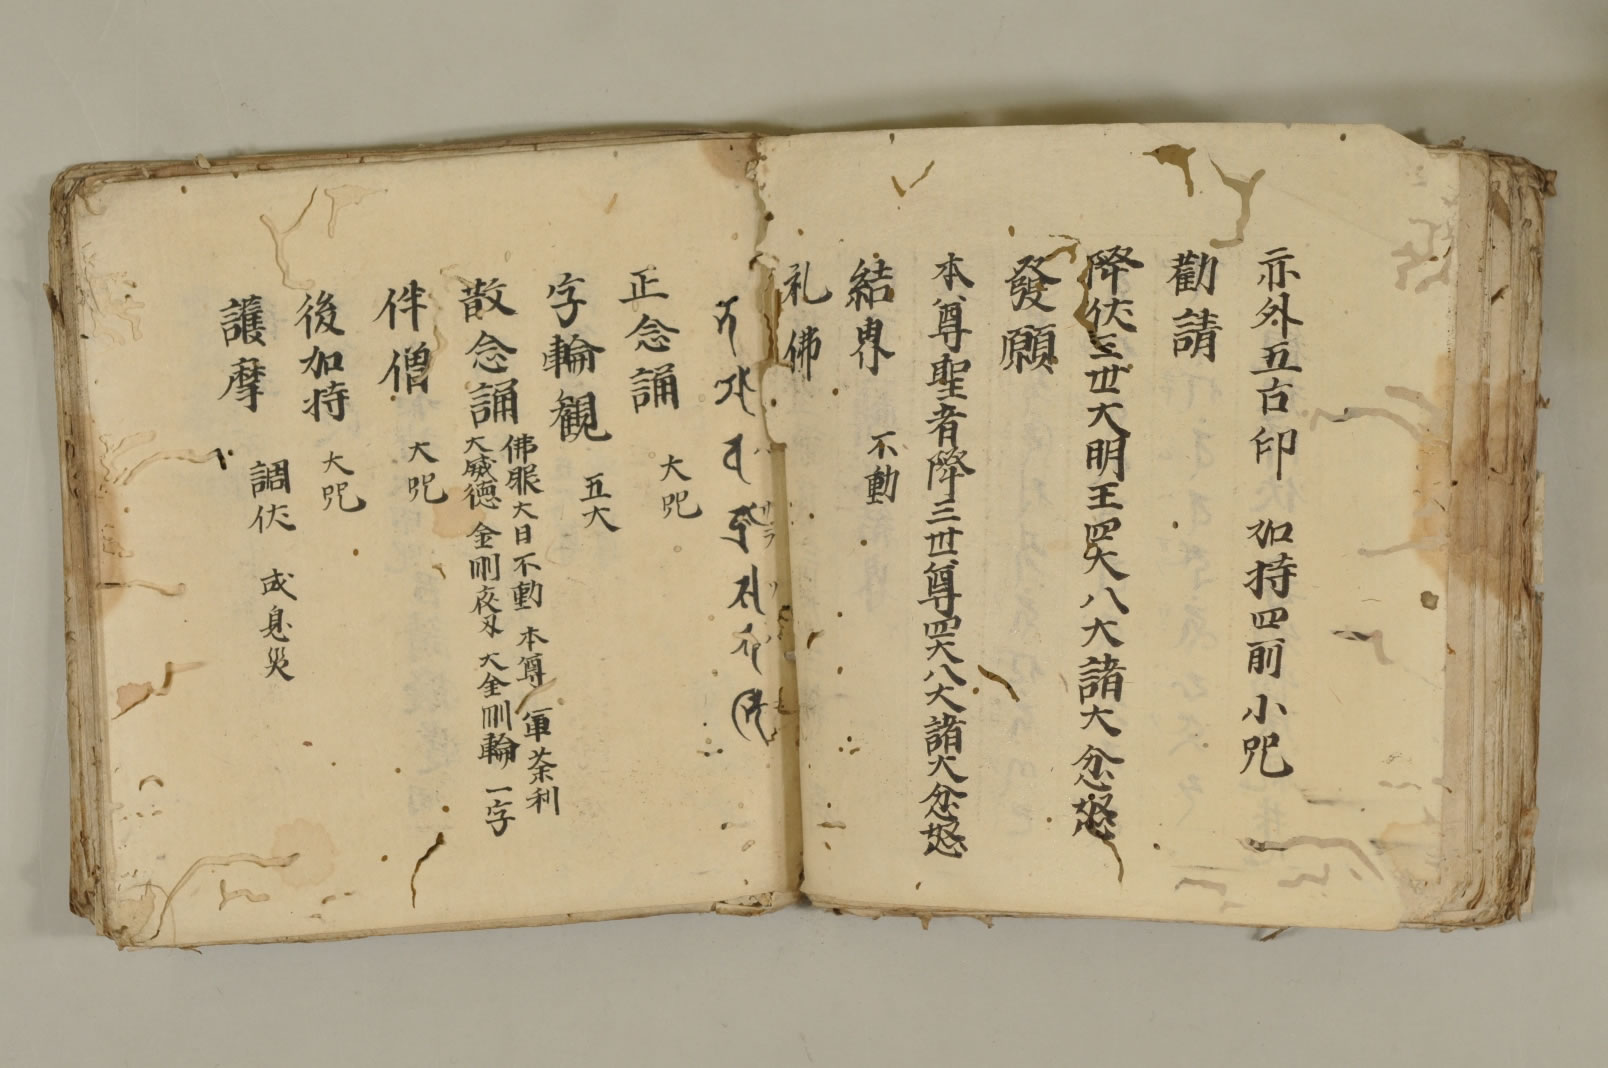 亦外五古印 加持四前小咒
勸請
降伏三世大明王四大八大諸大忿怒
發願
本尊聖者降三世尊四大八大諸大忿怒
結界 不動
礼佛
正念誦 大咒
字輪観 五大
散念誦 佛眼 大日 不動 本尊 軍荼利
大威德 金剛夜叉 大金剛輪 一字
伴僧 大咒
後加持 大咒
護摩 調伏 或息災